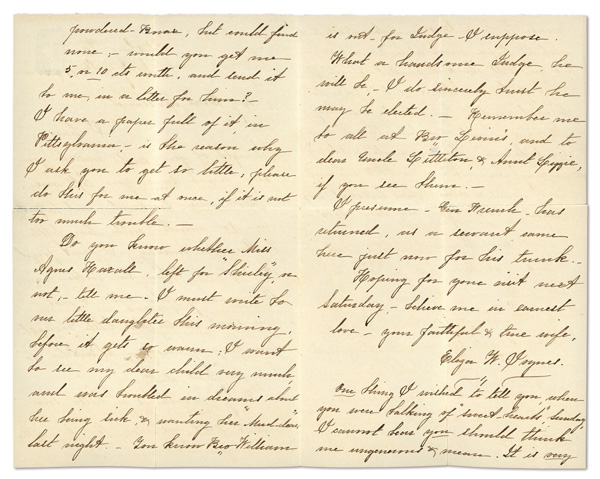 powdered-Borax, but could find
none,- would you get me
5 or 10 cts worth, and send it
to me, in a letter for him?-
I have a paper full of it, in
Pittsylvania,- is the reason why
I ask you to get so little, please
do this for me at once, if it is not
too much trouble.-
Do you know whether Miss
Agnes Haxall, left for "Shirley", or
not,- tell me. I must write to
our little daughter this morning,
before it gets so warm; I want
to see my dear child very much
and was troubled in dreams about
her being sick, & wanting her
last night.- You know Bro William
is not- for Judge- I suppose.
What a handsome Judge, he
will be,- I do sincerely trust he
may be elected.- Remember me
to all at Bro and to
dear Uncle Littleton, & Aunt Lizzie,
if you see them.-
I presume- has
returned, as a servant came
here just now for his trunk.-
Hoping for your visit next
Saturday,- believe me in earnest
love- your faithful & true wife,
Eliza W.
One thing I wished to tell you, when
you were talking of "sweet-hearts", Sunday,
I cannot bear you should think
me ungenerous & mean. It is very